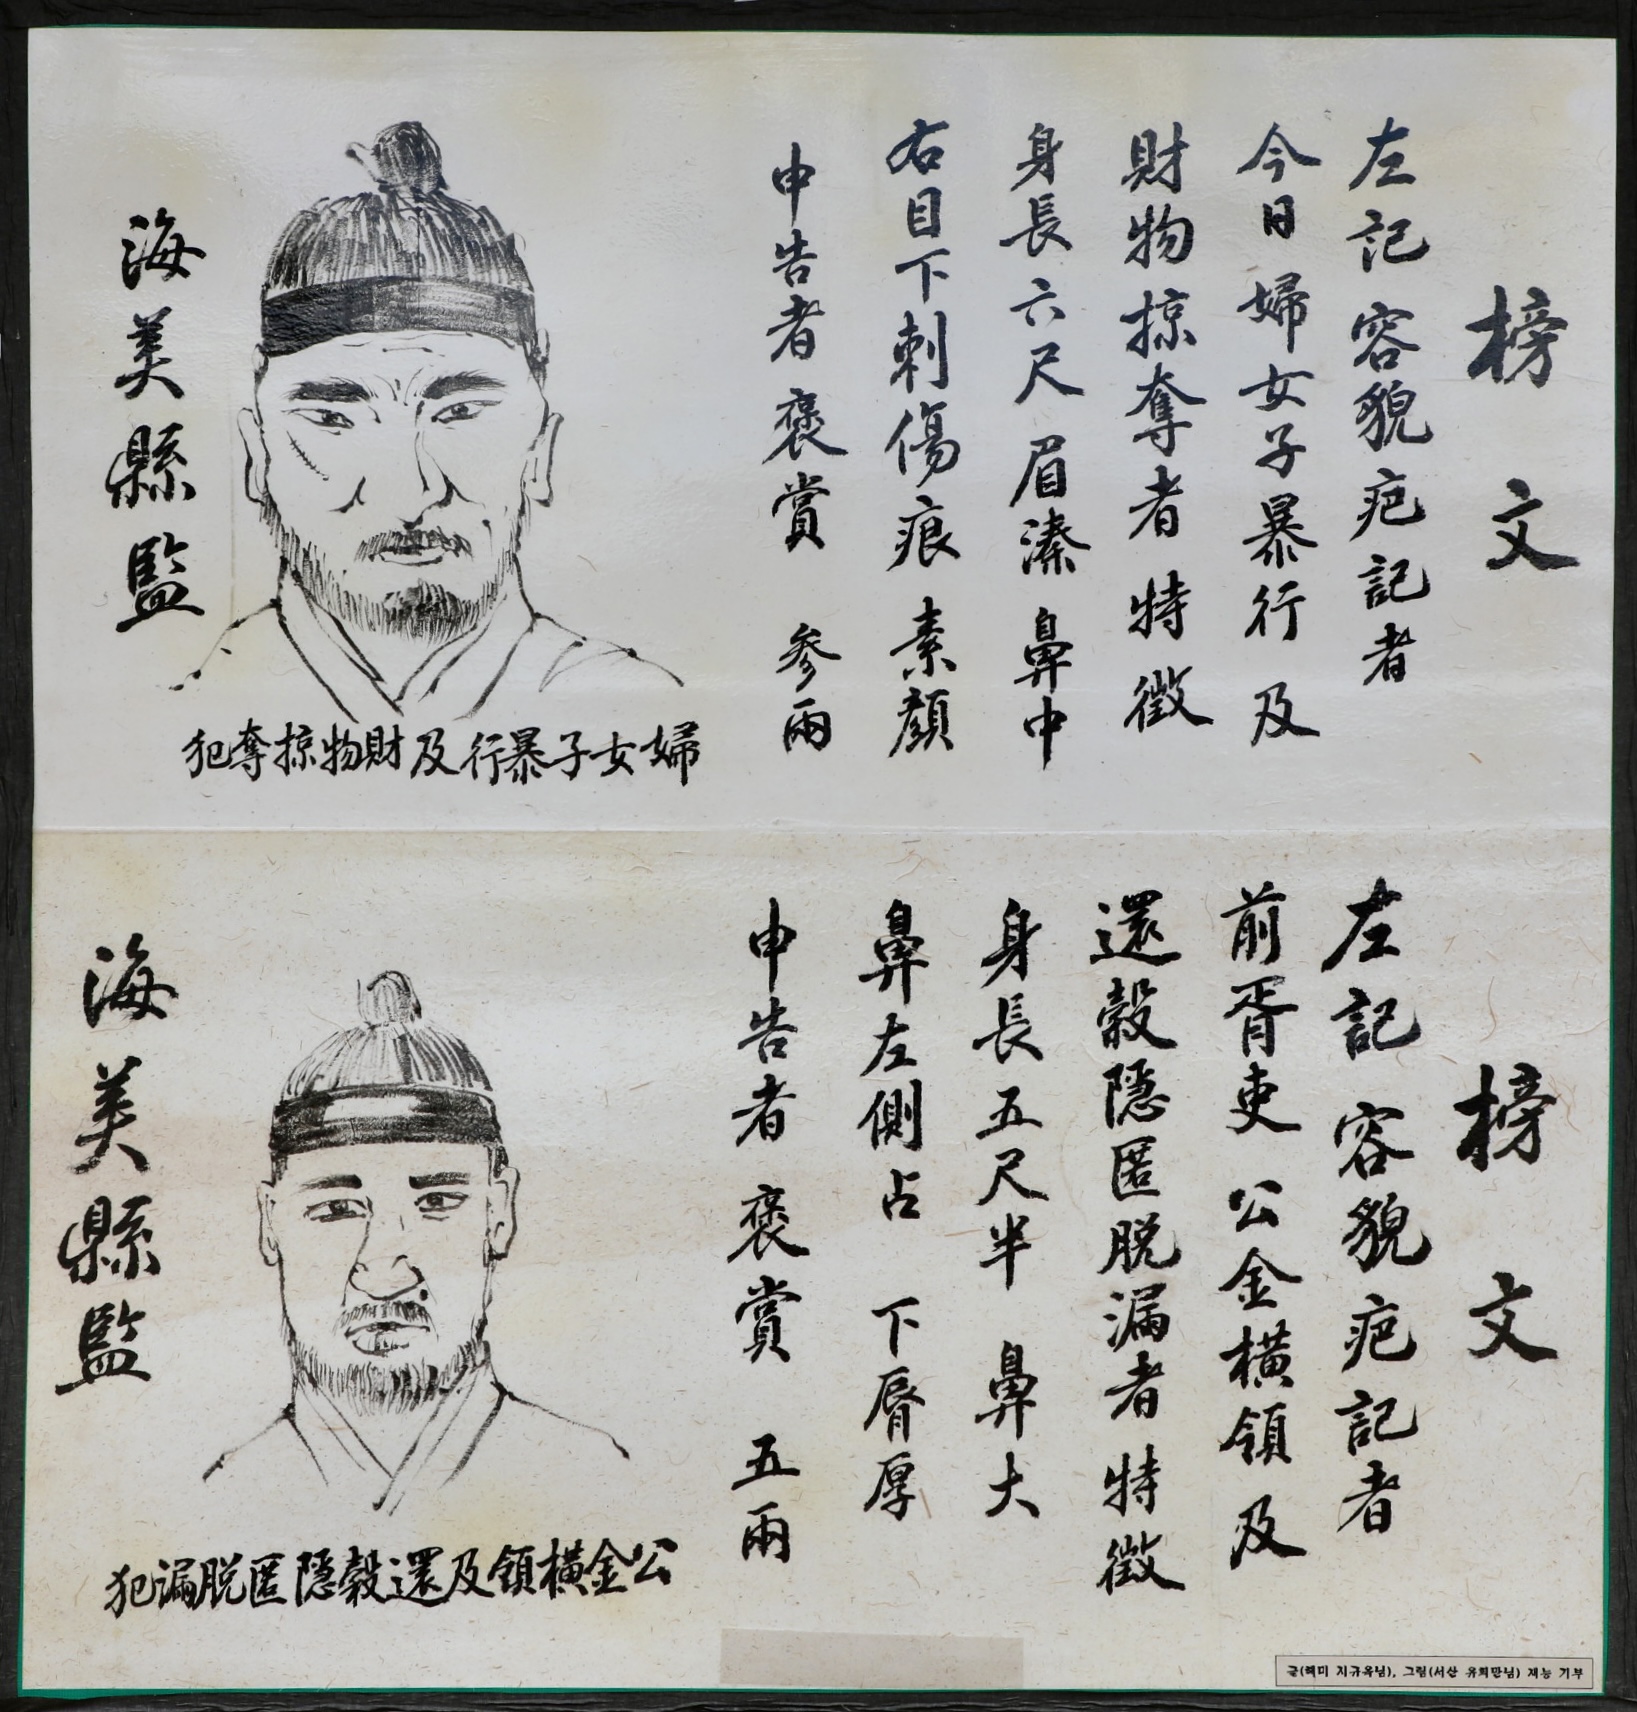 榜文
左記 容貌疤記者
今日 婦女子暴行 及
財物掠奪者 特徵
身長六尺 眉溱 鼻中
右目下刺傷痕 素顔
申告者 褒賞 參兩
海美縣監
犯奪掠物財及行暴子女婦
榜文
左記 容貌疤記者
前胥吏 公金橫領 及
還穀隱匿脫漏者 特徵
身長五尺半 鼻大
鼻左側占 下脣厚
申告者 褒賞 五兩
海美縣監
犯漏脫匿隱穀還及領橫金公
글(해미 지규옥님), 그림(서산 유희만님) 재능 기부